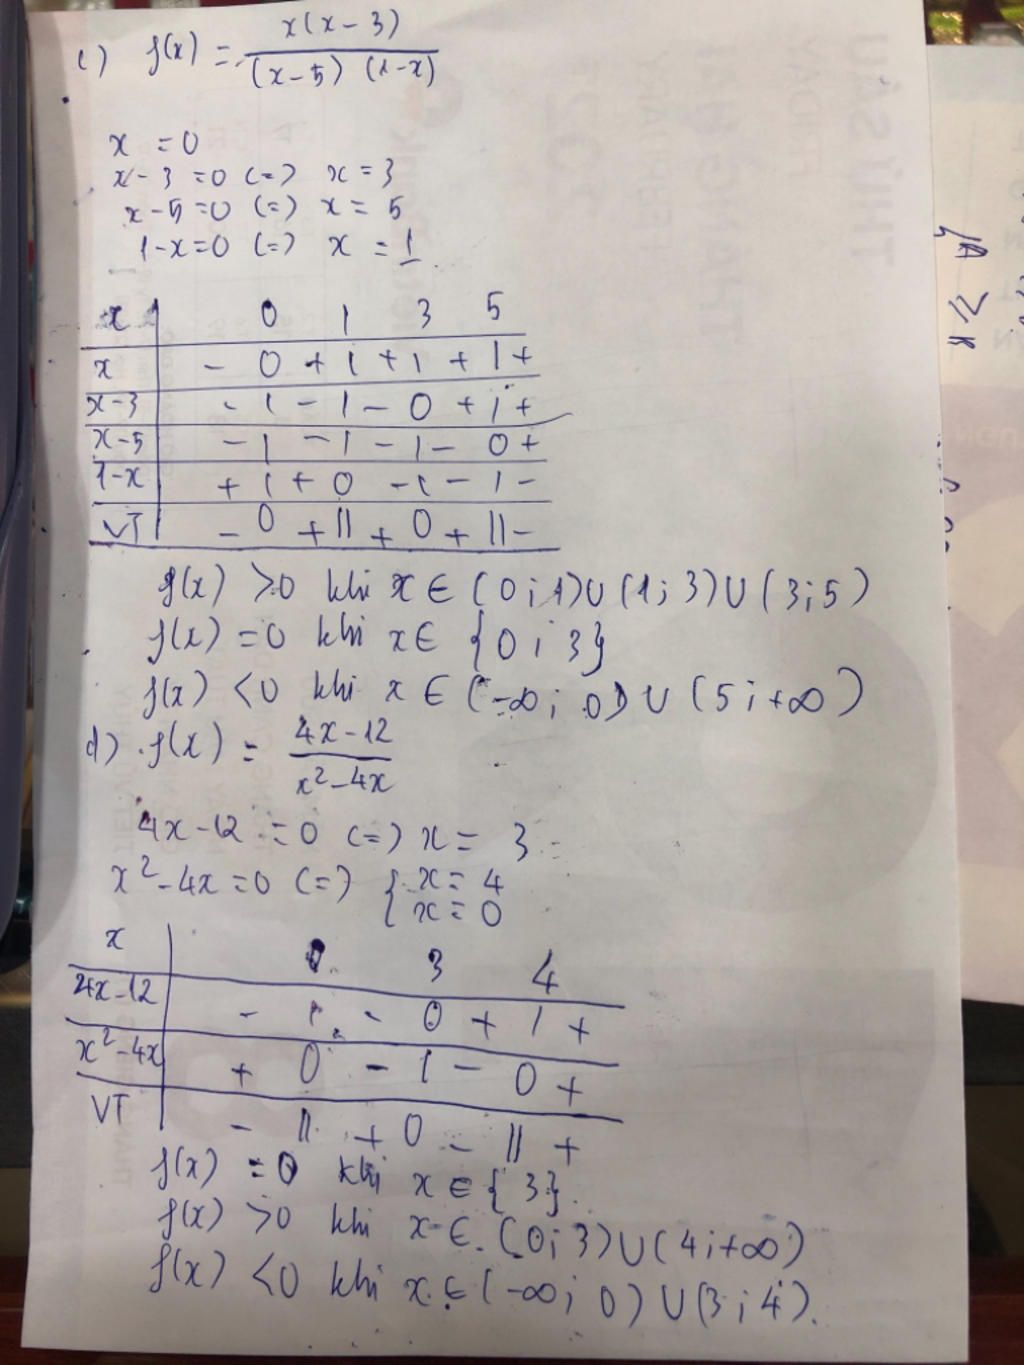 c) f(x) = x(x-3) / (x-5) (1-x)
x = 0
x-3 =0 (=) x=3
x-5=0 (=) x= 5
1-x=0 (=) x = 1
x | 0 1 3 5
x | - 0 + | + | + | +
x-3 | - | - | - 0 + | +
x-5 | - | - | - | - 0 +
1-x | + | + 0 - | - | -
VT | - 0 + || + 0 + || -
f(x) >0 khi x ∈ (0;1)∪(1;3)∪(3;5)
f(x) =0 khi x∈ {0;3}
f(x) <0 khi x ∈ (-∞; 0) ∪ (5;+∞)
d) f(x) = 4x-12 / x²-4x
4x-12 =0 (=) x = 3
x²-4x=0 (=) { x= 4
x= 0
x | 0 3 4
4x-12 | - | - 0 + | +
x²-4x | + 0 - | - 0 +
VT | - || + 0 - || +
f(x) =0 khi x ∈ {3}.
f(x) >0 khi x ∈ (0;3)∪(4;+∞)
f(x) <0 khi x ∈ (-∞; 0) ∪(3;4).